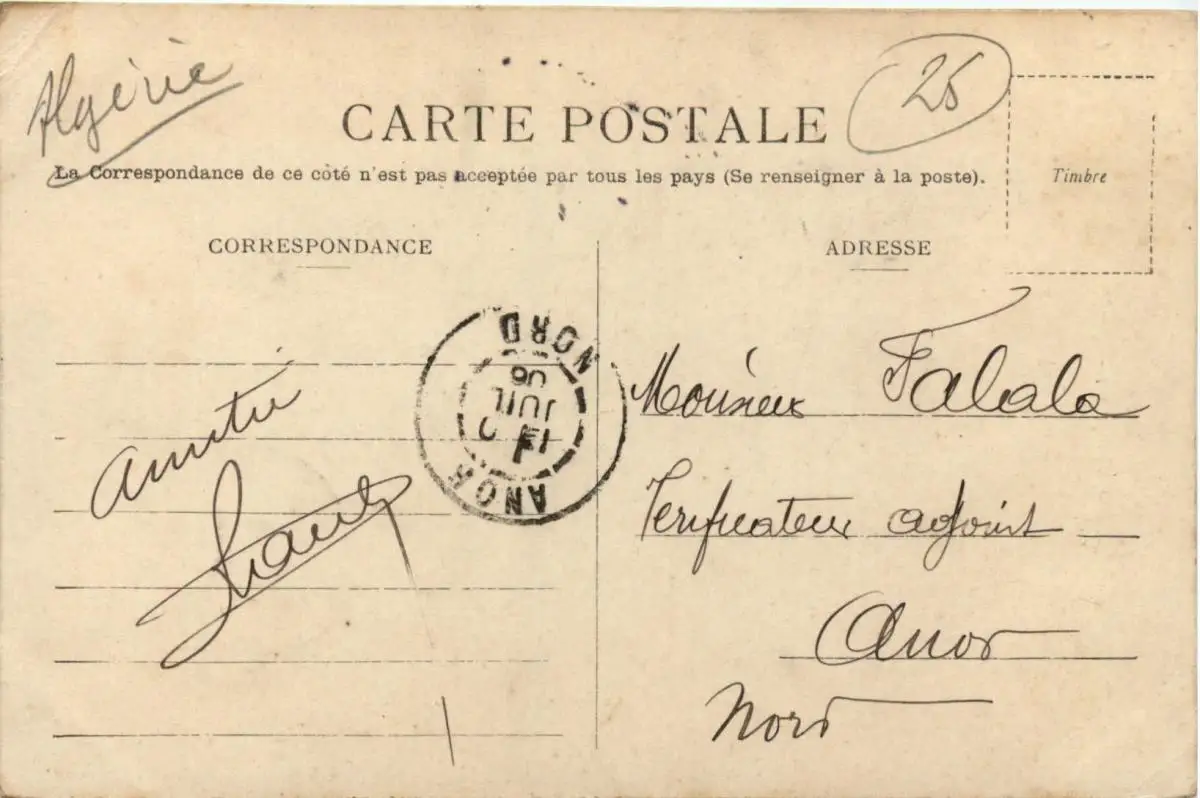 Algérie
25
CARTE POSTALE
La Correspondance de ce côté n'est pas acceptée par tous les pays (Se renseigner à la poste).
Timbre
CORRESPONDANCE
ADRESSE
NORD
JUIL
06
ANOR
amitié
Monsieur
Verificateur adjoint
Anor
Nord